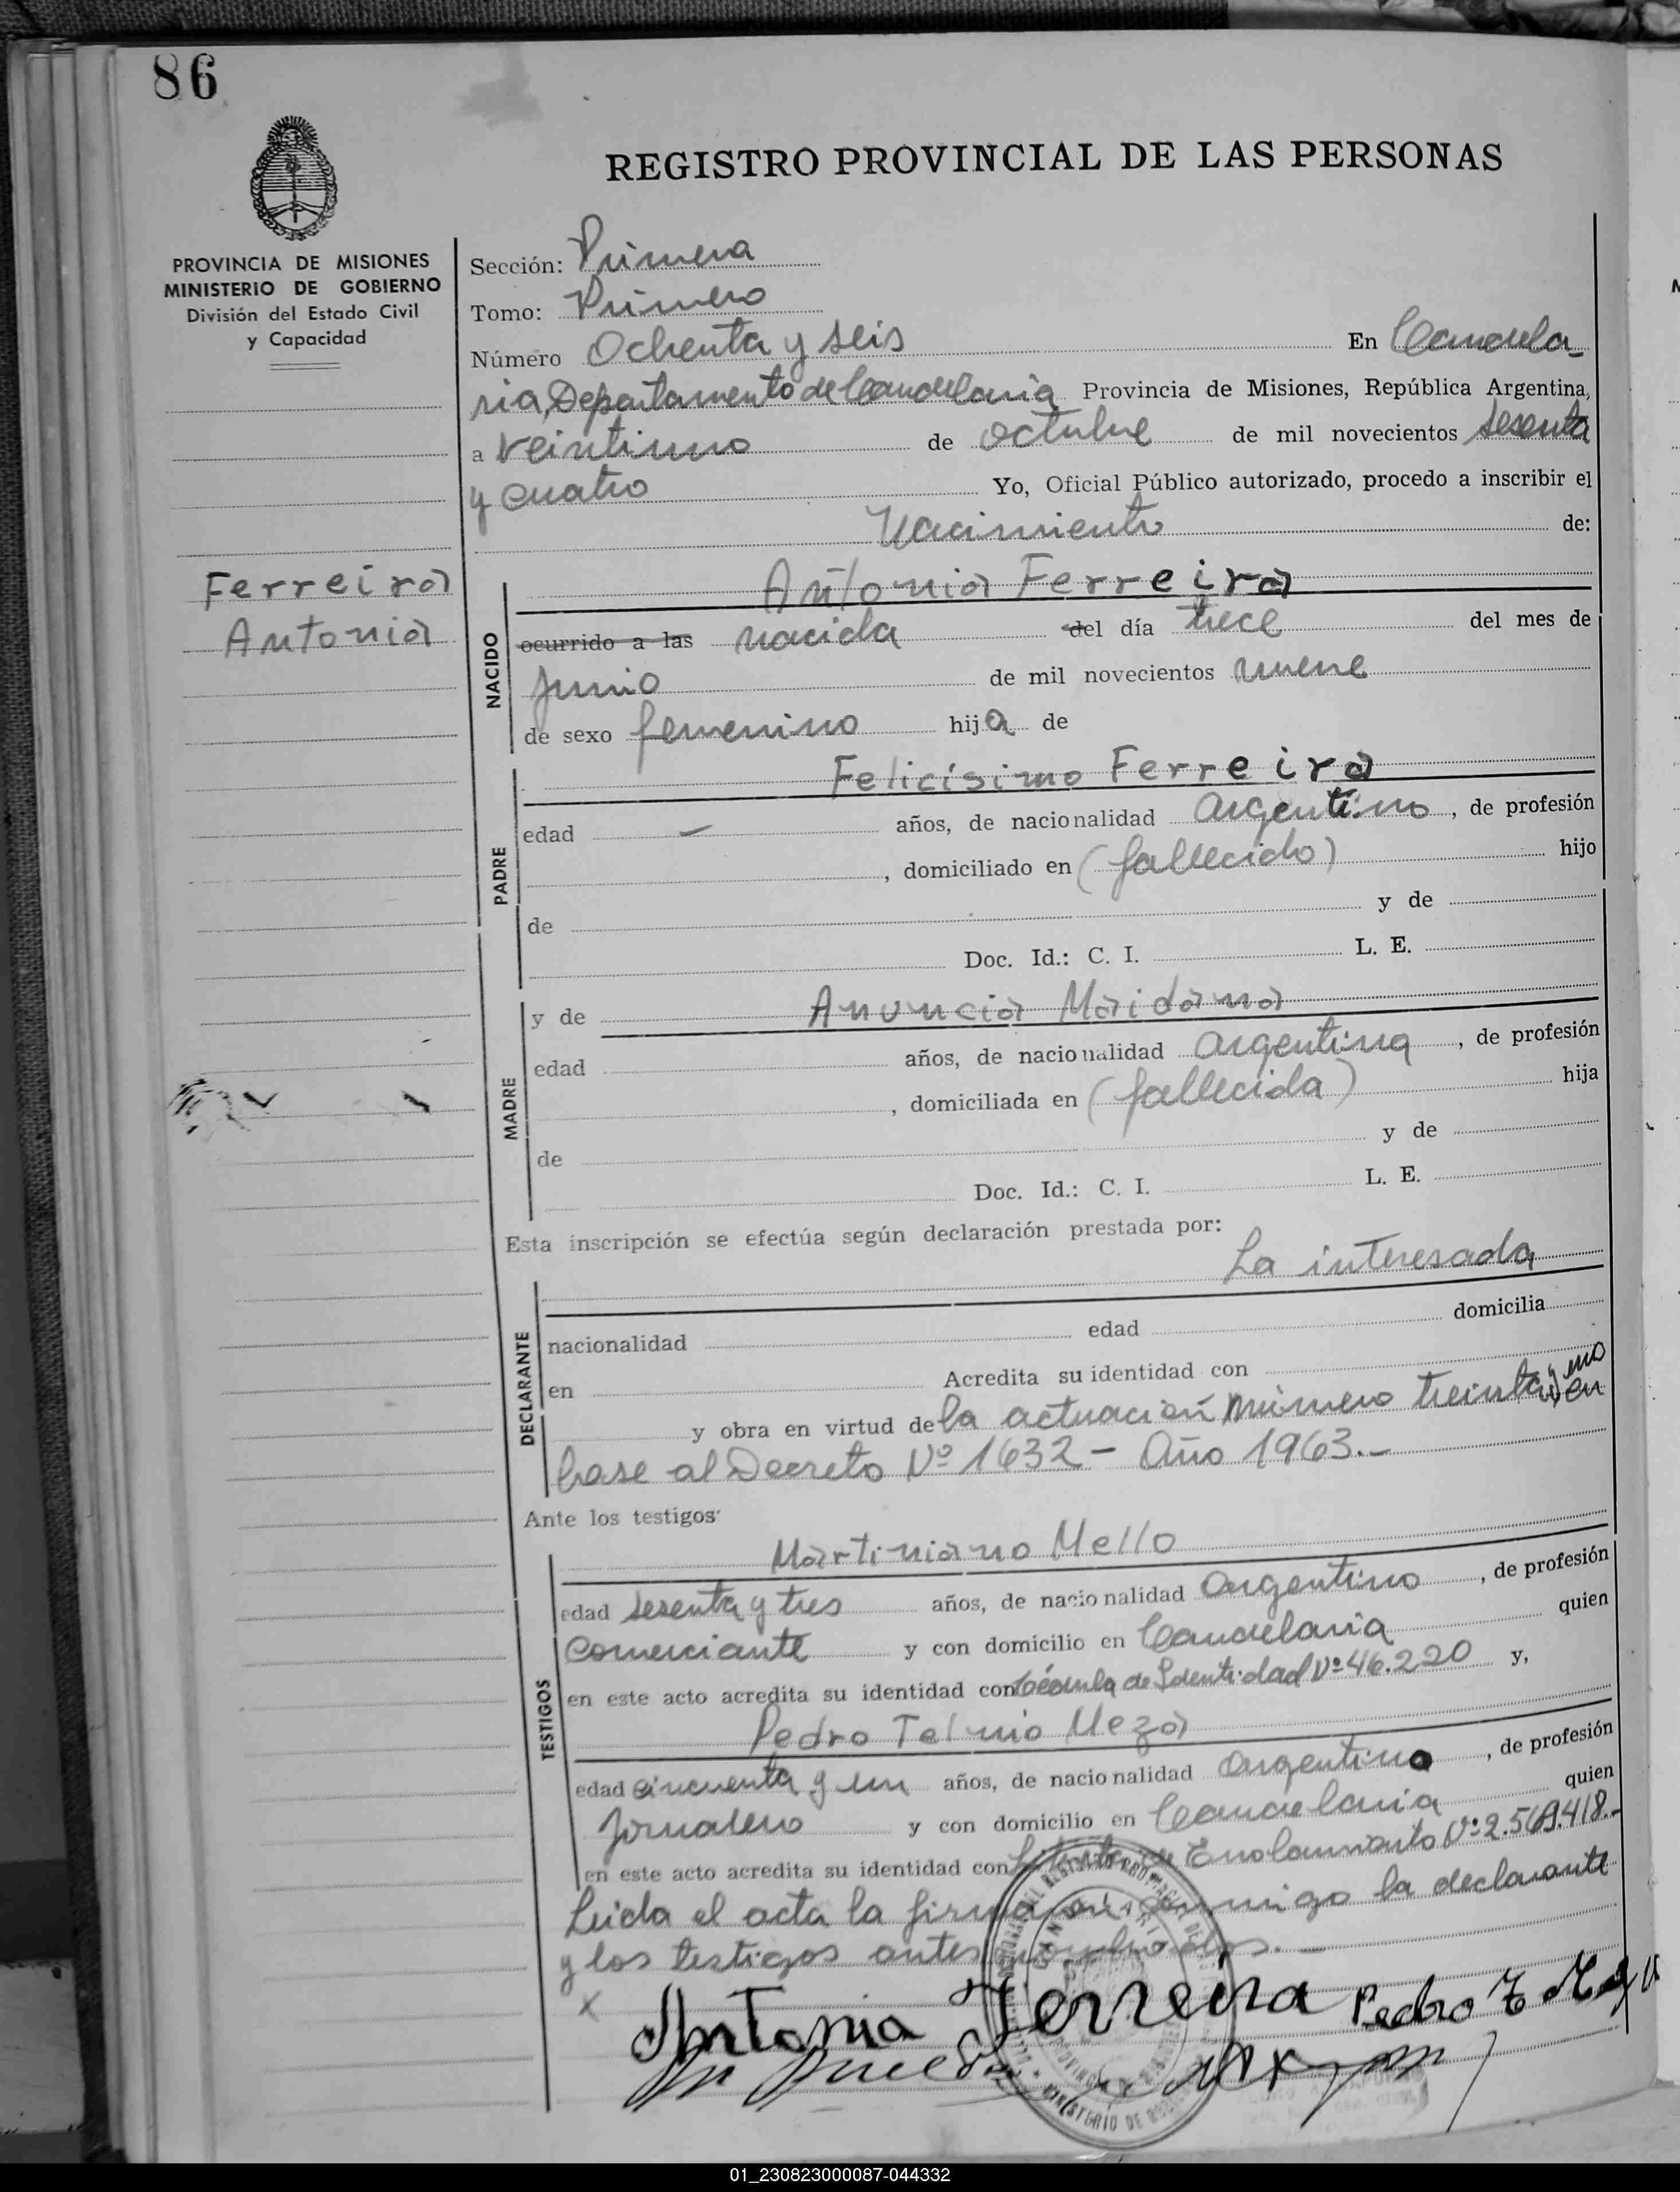 86
REGISTRO PROVINCIAL DE LAS PERSONAS
PROVINCIA DE MISIONES
MINISTERIO DE GOBIERNO
División del Estado Civil
y Capacidad
Sección: Primera
Tomo: Primero
Número Ochenta y seis En Candela-
ria, Departamento de Candelaria Provincia de Misiones, República Argentina,
a veintiuno de octubre de mil novecientos sesenta
y cuatro Yo, Oficial Público autorizado, procedo a inscribir el
Nacimiento de:
Ferreira
Antonia
NACIDO
Antonia Ferreira
ocurrido a las nacida del día trece del mes de
junio de mil novecientos nueve
de sexo femenino hija de
PADRE
Felicísimo Ferreira
edad — años, de nacionalidad argentino, de profesión
, domiciliado en (fallecido) hijo
de y de
Doc. Id.: C. I. L. E.
MADRE
y de Anuncia Maidana
edad años, de nacionalidad argentina, de profesión
, domiciliada en (fallecida) hija
de y de
Doc. Id.: C. I. L. E.
Esta inscripción se efectúa según declaración prestada por:
La interesada
DECLARANTE
nacionalidad edad domicilia
en Acredita su identidad con
y obra en virtud de la actuación número treinta y uno en
base al Decreto Nº 1632 - Año 1963.-
Ante los testigos:
TESTIGOS
Martiniano Mello
edad sesenta y tres años, de nacionalidad argentino, de profesión
comerciante y con domicilio en Candelaria quien
en este acto acredita su identidad con Cédula de Identidad Nº 46.220 y,
Pedro Telmo Meza
edad cincuenta y un años, de nacionalidad argentino, de profesión
jornalero y con domicilio en Candelaria quien
en este acto acredita su identidad con Libreta de Enrolamiento Nº 2.569.418.-
Leída el acta la firman conmigo la declarante
y los testigos antes nombrados. —
x Antonia Ferreira Pedro T Meza
01_230823000087-044332